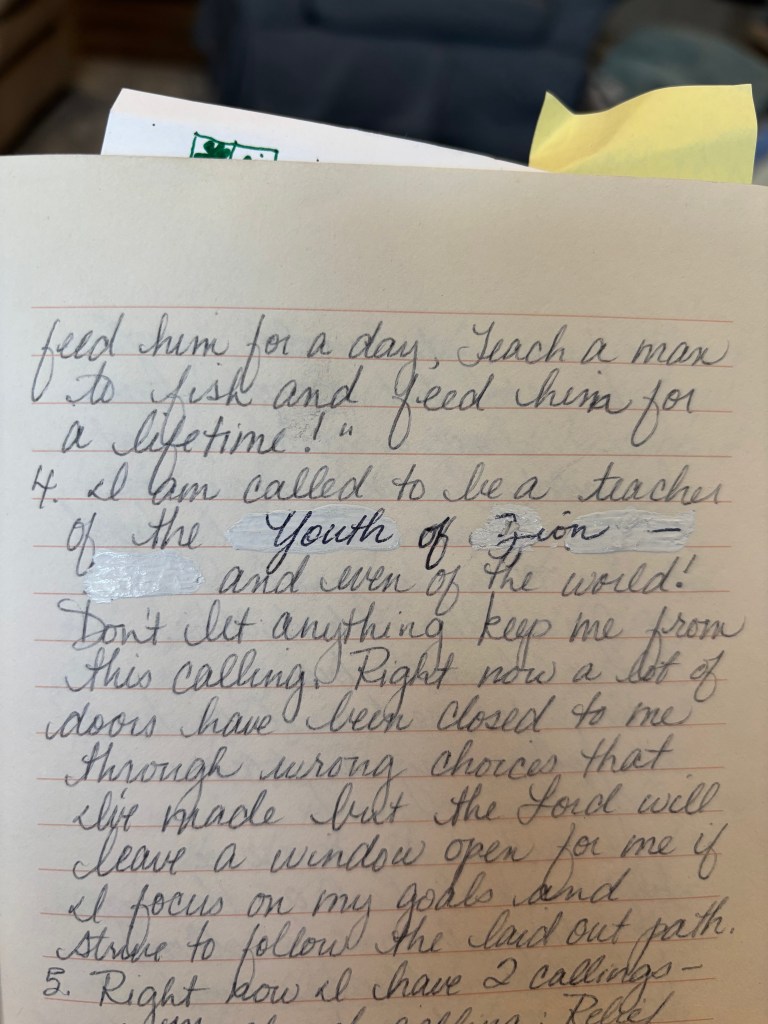 feed him for a day, Teach a man
to fish and feed him for
a lifetime!"
4. I am called to be a teacher
of the Youth of Zion -
and even of the world!
Don't let anything keep me from
this calling. Right now a lot of
doors have been closed to me
through wrong choices that
I've made but the Lord will
leave a window open for me if
I focus on my goals and
strive to follow the laid out path.
5. Right now I have 2 callings-
calling: Relief